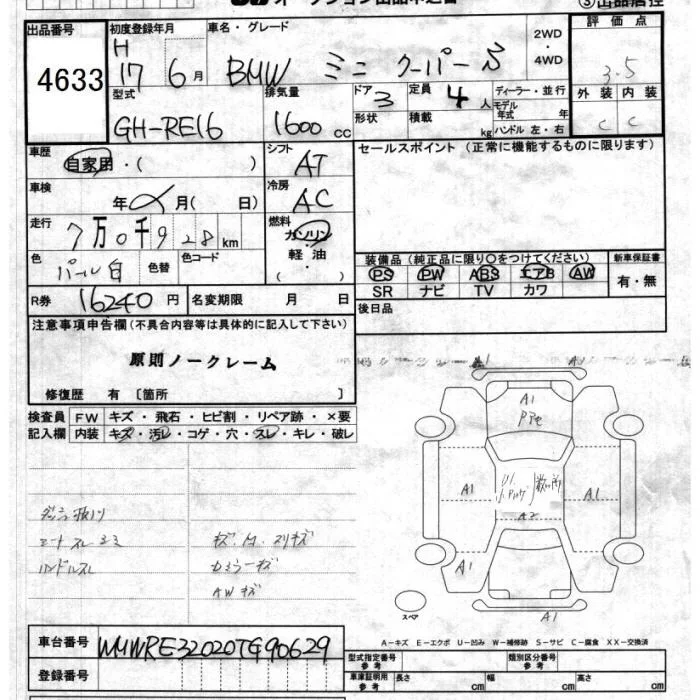 オークション出品申込書
③出品店控
出品番号
4633
初度登録年月
H
17 6月
車名・グレード
BMW ミニ クーパーS
2WD
・
4WD
評価点
3.5
外装 内装
C C
型式
GH-RE16
排気量
1600 cc
ドア 3
形状
定員 4人
積載 kg
ディーラー・並行
モデル年式 年
ハンドル 左・右
車歴
自家用・( )
シフト
AT
セールスポイント (正常に機能するものに限ります)
車検
年 月( 日)
冷房
AC
走行
7万0千928km
燃料
ガソリン
・
軽油
( )
色
パール白
色替
色コード
装備品(純正品に限り〇をつけてください)
PS PW ABS エアB AW
SR ナビ TV カワ
新車保証書
有・無
R券 16240円
名変期限 月 日
後日品
注意事項申告欄(不具合内容等は具体的に記入して下さい)
原則ノークレーム
修復歴 有 〔箇所 〕
検査員
記入欄
FW キズ・飛石・ヒビ割・リペア跡・×要
内装 キズ・汚レ・コゲ・穴・スレ・キレ・破レ
A1
A1
A1
A1
A1
A1
A1
A2
ハンドルスレ
AWキズ
スペア
車台番号
WMWRE32020TG90629
登録番号
A－キズ E－エクボ U－凹み W－補修跡 S－サビ C－腐食 XX－交換済
型式指定番号
参考
類別区分番号
参考
車庫証明用
参考
長さ cm
幅 cm
高さ cm